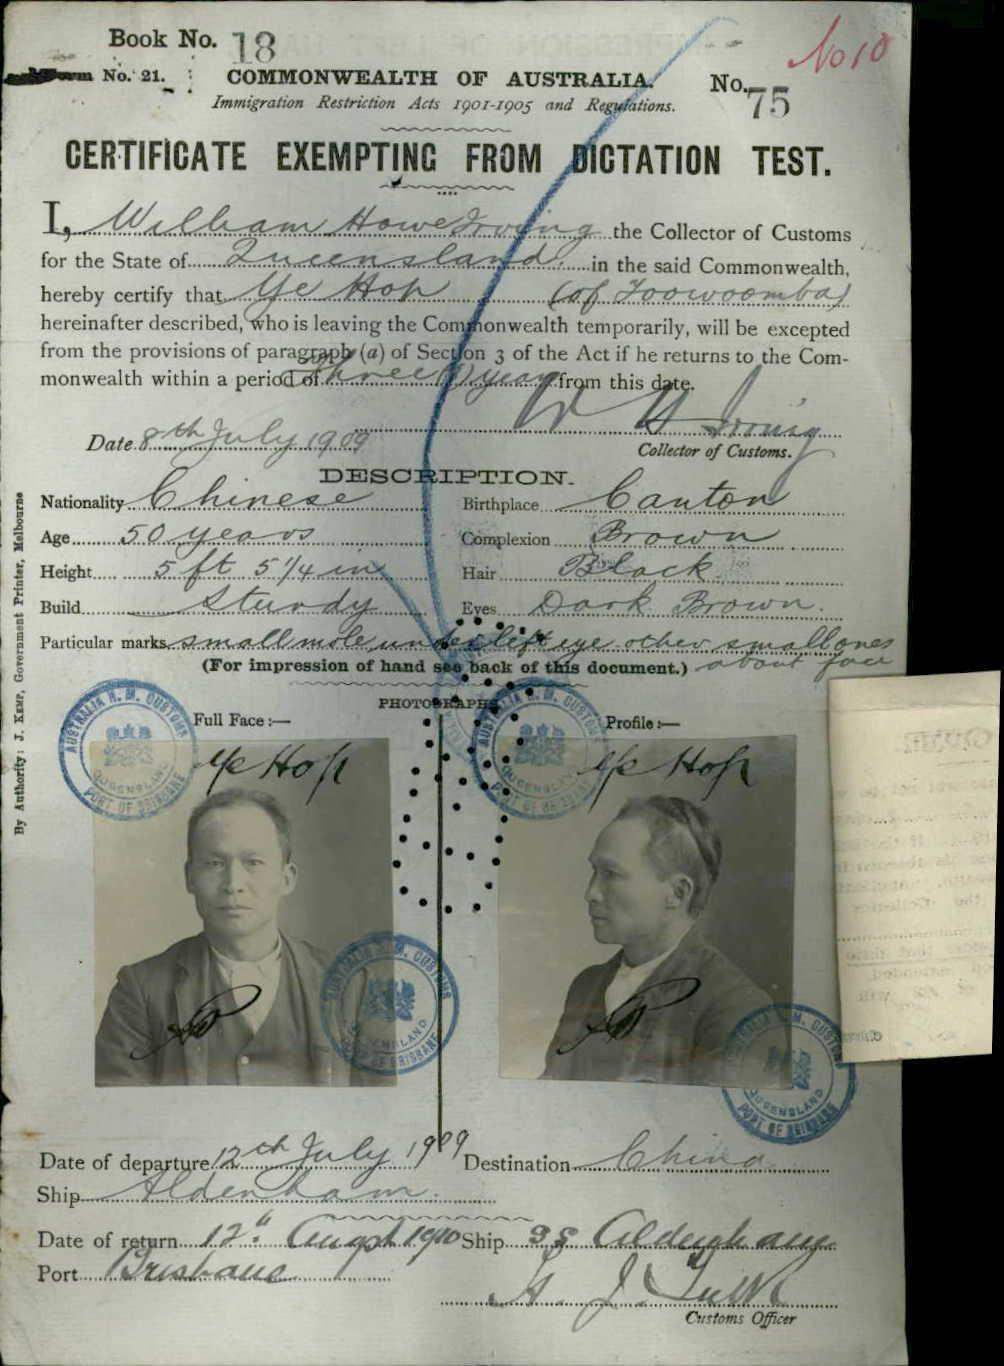 Book No. 18
No 10
Form No. 21.
COMMONWEALTH OF AUSTRALIA.
No. 75
Immigration Restriction Acts 1901-1905 and Regulations.
CERTIFICATE EXEMPTING FROM DICTATION TEST.
I, William Howe Irving the Collector of Customs
for the State of Queensland in the said Commonwealth,
hereby certify that Ye Hop (of Toowoomba)
hereinafter described, who is leaving the Commonwealth temporarily, will be excepted
from the provisions of paragraph (a) of Section 3 of the Act if he returns to the Com-
monwealth within a period of Three years from this date.
W H Irving
Date 8th July 1909
Collector of Customs.
DESCRIPTION.
Nationality Chinese Birthplace Canton
Age 50 years Complexion Brown
Height 5 ft 5 1/4 in Hair Black
Build Sturdy Eyes Dark Brown.
Particular marks small mole under left eye other small ones
(For impression of hand see back of this document.) about face
PHOTOGRAPHS
Full Face:— Profile:—
Ye Hop Ye Hop
AUSTRALIA H. M. CUSTOMS
QUEENSLAND
PORT OF BRISBANE
AUSTRALIA H. M. CUSTOMS
QUEENSLAND
PORT OF BRISBANE
AUSTRALIA H. M. CUSTOMS
QUEENSLAND
PORT OF BRISBANE
AUSTRALIA H. M. CUSTOMS
QUEENSLAND
PORT OF BRISBANE
Date of departure 12th July 1909 Destination China
Ship Aldenham.
Date of return 12th Augst 1910 Ship SS Aldenham
Port Brisbane
Customs Officer
By Authority: J. KEMP, Government Printer, Melbourne